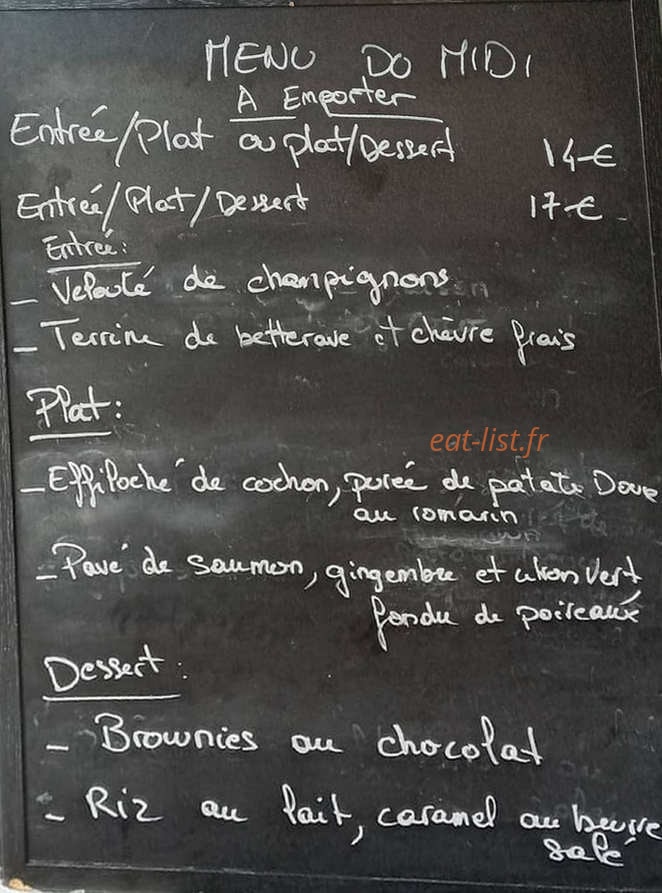 MENU DO MIDI
A Emporter
Entrée/Plat ou plat/Dessert 14€
Entrée/Plat/Dessert 17€
Entrée:
- Velouté de champignons
- Terrine de betterave et chèvre frais
Plat:
eat-list.fr
- Effiloché de cochon, purée de patate Douce
au romarin
- Pavé de saumon, gingembre et citron vert
fondu de poireaux
Dessert:
- Brownies au chocolat
- Riz au lait, caramel au beurre
salé